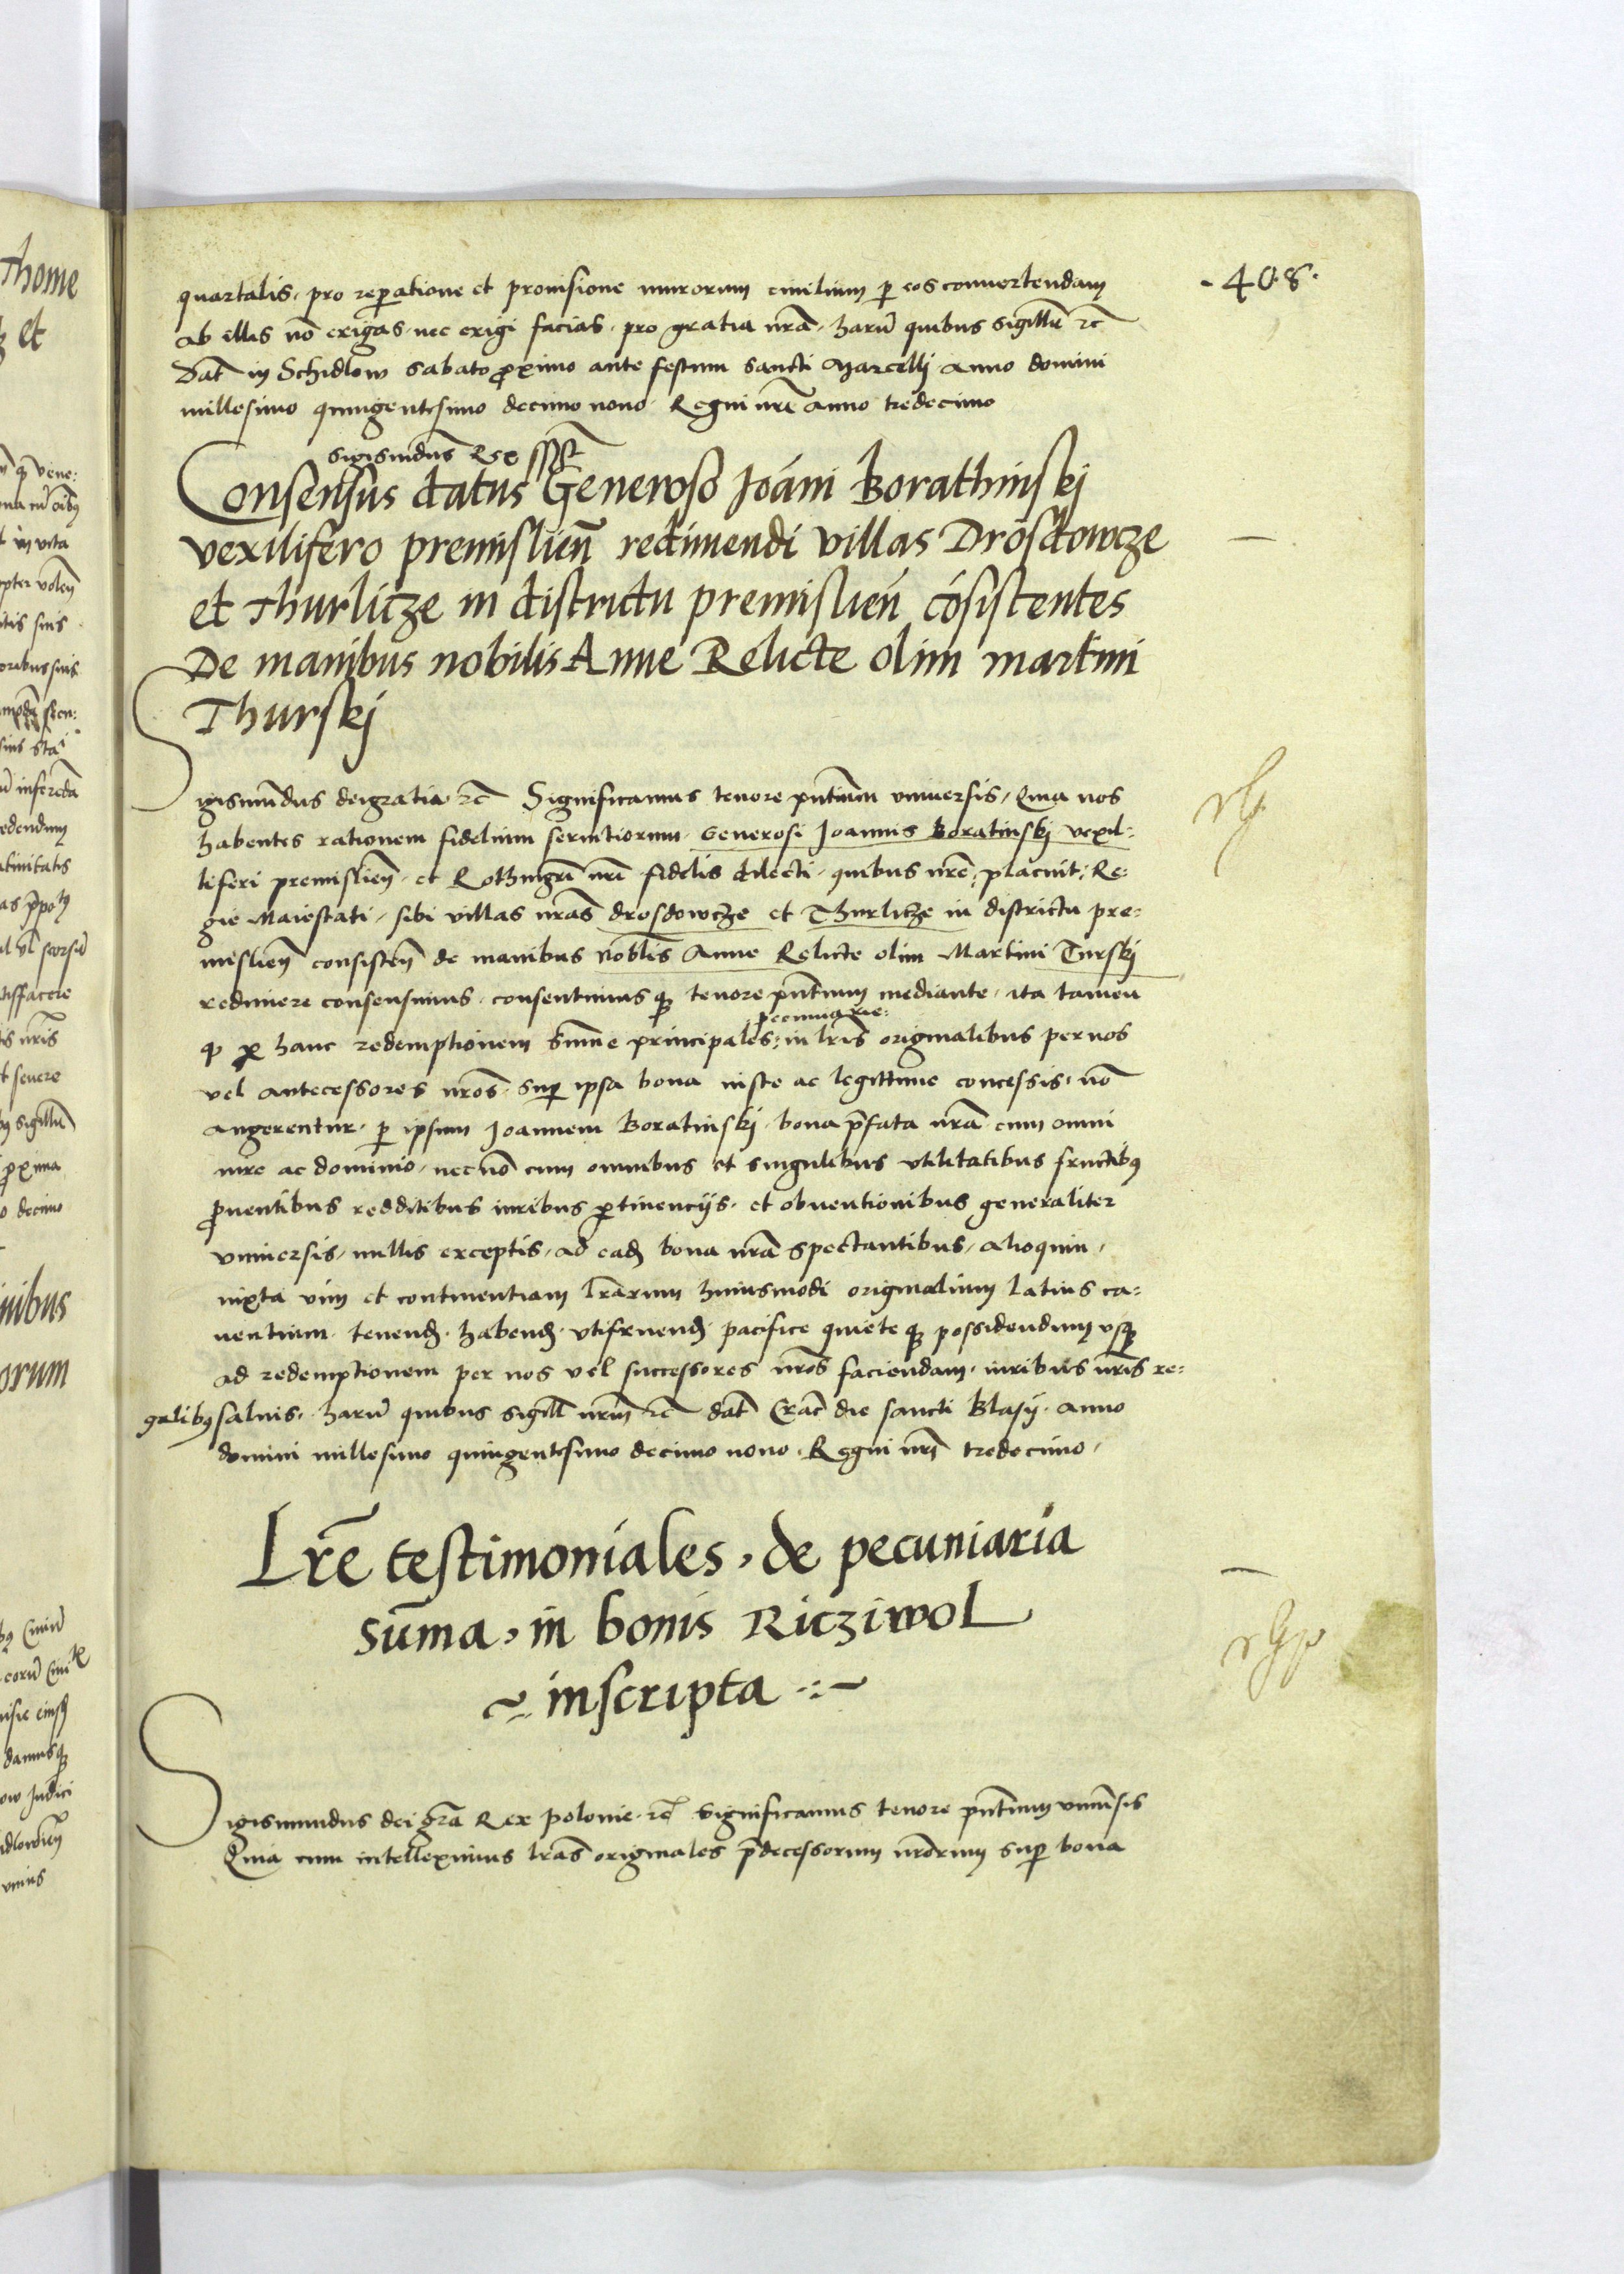 .408.
quartalis, pro reperatione et prouisione murorum ciuilium p eos conuertendam
ab illis nō exigas, nec exigi facias, pro gratia nr̄a, harū quibus sigillū rc̄
Dat̄ in Schidlow sabato proximo ante festum Sancti Marcelli Anno domini
millesimo quingentesimo decimo nono Regni nr̄i Anno tredecimo
Sigismūdus Rex
Consensus datus Generoso Ioāni Borathinskj
vexilifero premislien̄ redimendi villas Drosdowcze
et Thurlicze in districtu premislień cōsistentes
De manibus nobilis Anne Relicte olim martini
Thurskj
Sigismūdus dei gratia rc̄ Significamus tenore pn̄tium vniuersis, Quia nos
habentes rationem fidelium seruitiorum Generosi Joannis Boratinskj vexil:
liferi premislien̄, et Rothmgr̄i nr̄i fidelis dilecti, quibus nr̄e, placuit, Re:
gie Maiestati, sibi villas nr̄as drosdowcze et Thurlicze in districtu pre:
mislien̄ consisten̄ de manibus nobīlis Anne Relicte olim Martini Turskj
redimere consensimus, consentimusq tenore pn̄tium mediante, ita tamen
pecuniarie:
q p hanc redemptionem sum̄e principales: in lr̄is originalibus per nos
vel antecessores nr̄os sup ipsa bona iuste ac legittime concessis, nō
augerentur, p ipsum Joannem Boratinskj, bona p̄fata nr̄a cum omni
iure ac dominio, nec nō cum omnibus et singulibus vtilitatibus fructibꝯ
prouentibus redditibus iuribus ptinencijs, et obuentionibus generaliter
vniuersis, nullis exceptis, ad eadꝫ bona nr̄a spectantibus, alioquin,
iuxta vim et continentiam lr̄arum huiusmodi originalium latius ca:
uentium, tenendꝫ, habendꝫ, vtifruendꝫ, pacifice quieteq possidendum vsq
ad redemptionem per nos vel successores nr̄os faciendam, iuribus nr̄is re:
galibꝯ saluis, harū quibus sigill nr̄m rc̄ dat̄ Crac̄ die sancti Blasij, anno
domini millesimo quingentesimo decimo nono, Regni nr̄i tredecimo,
Lr̄e testimoniales, de pecuniaria
sūma, in bonis Ricziwol
inscripta
Sigismundus dei gr̄a Rex polonie, rc̄ Significamus tenore pn̄tium vniuersis
Quia cum intelleximus lr̄as originales p̄decessorum nr̄orum sup bona